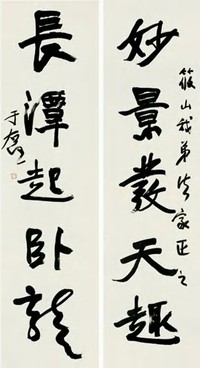 筱山我弟法家正之
妙景發天趣
長潭起卧龍
于右任